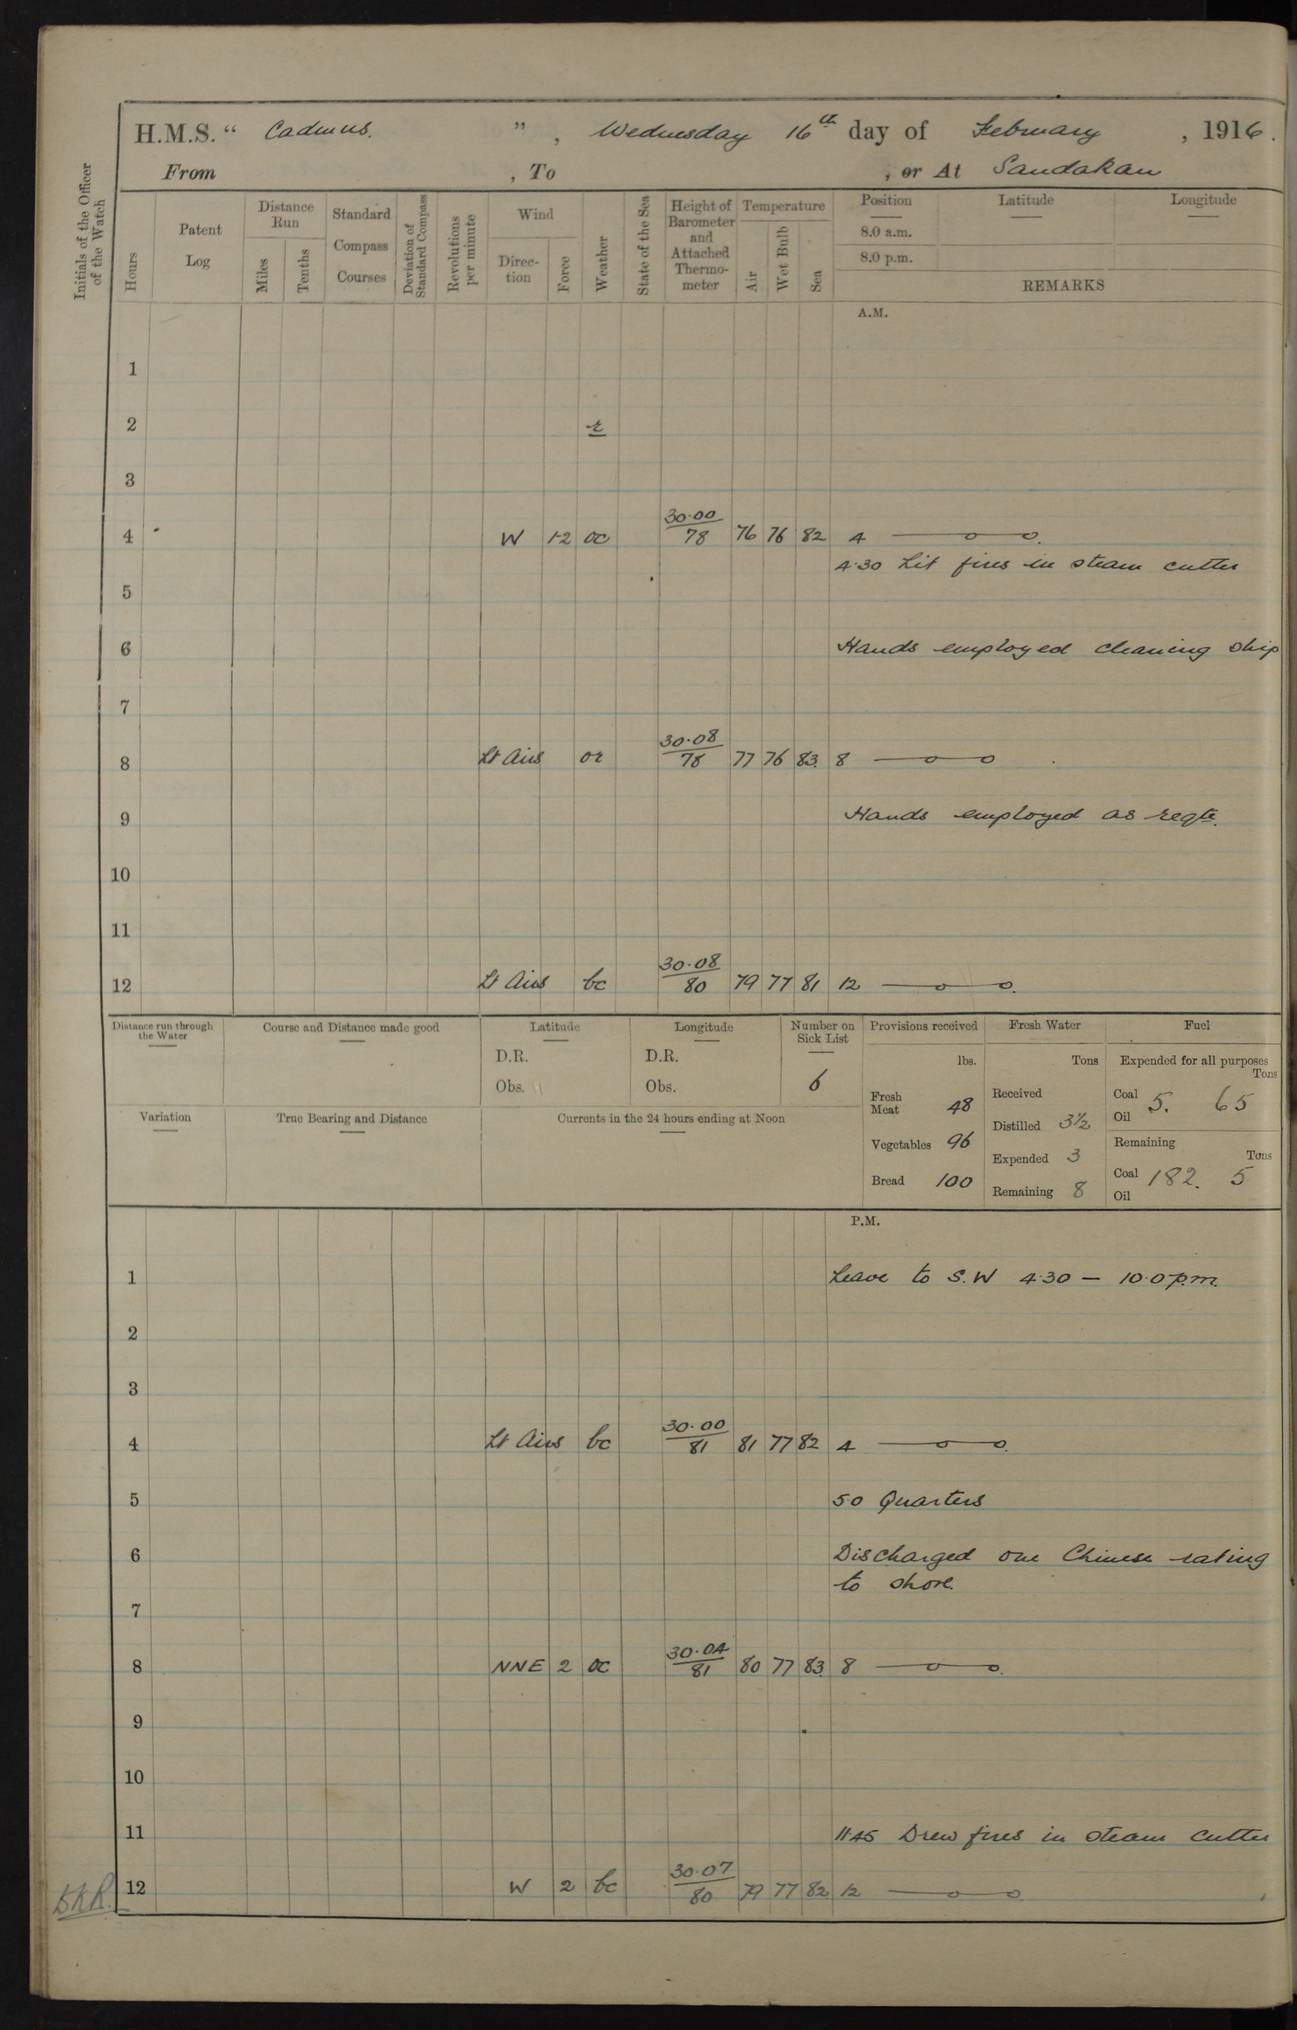 H.M.S. " Cadmus. " , Wednesday 16th day of February , 1916.
From , To , or At Sandakan
Initials of the Officer of the Watch
Hours
Patent Log
Distance Run
Miles
Tenths
Standard Compass Courses
Deviation of Standard Compass
Revolutions per minute
Wind
Direction
Force
Weather
State of the Sea
Height of Barometer and Attached Thermometer
Temperature
Air
Wet Bulb
Sea
Position
8.0 a.m.
8.0 p.m.
Latitude
Longitude
REMARKS
A.M.
1
2 r
3
4 W 1-2 oc 30.00/78 76 76 82 4
4.30 Lit fires in steam cutter
5
6 Hands employed cleaning ship
7
8 Lt Airs or 30.08/78 77 76 83. 8
9 Hands employed as reqte.
10
11
12 Lt Airs bc 30.08/80 79 77 81 12
Distance run through the Water
Course and Distance made good
Latitude
D.R.
Obs.
Longitude
D.R.
Obs.
Number on Sick List
6
Provisions received
lbs.
Fresh Meat 48
Vegetables 96
Bread 100
Fresh Water
Tons
Received
Distilled 3½
Expended 3
Remaining 8
Fuel
Expended for all purposes
Tons
Coal 5. 65
Oil
Remaining
Tons
Coal 182. 5
Oil
Variation
True Bearing and Distance
Currents in the 24 hours ending at Noon
P.M.
1 Leave to S.W 4.30 — 10.0 p.m.
2
3
4 Lt Airs bc 30.00/81 81 77 82 4
5 5.0 Quarters
6 Discharged one Chinese rating
to shore.
7
8 NNE 2 oc 30.04/81 80 77 83. 8
9
10
11 11.45 Drew fires in steam cutter
12 W 2 bc 30.07/80 79 77 82 12